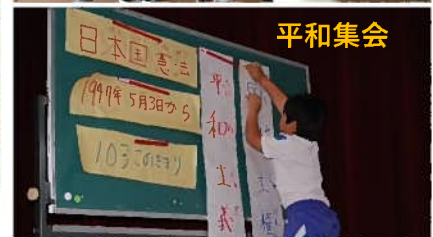 平和集会
日本国憲法
1947年5月3日から
103このきまり
平和主義